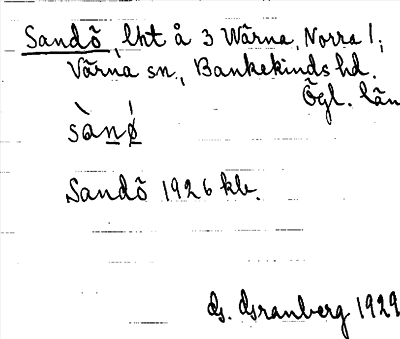 Sandö, lht å 3 Wärna, Norra l;
Värna sn., Bankekinds hd.
Ögl. län
sànø̀
Sandö 1926 kle.
Granberg 1929